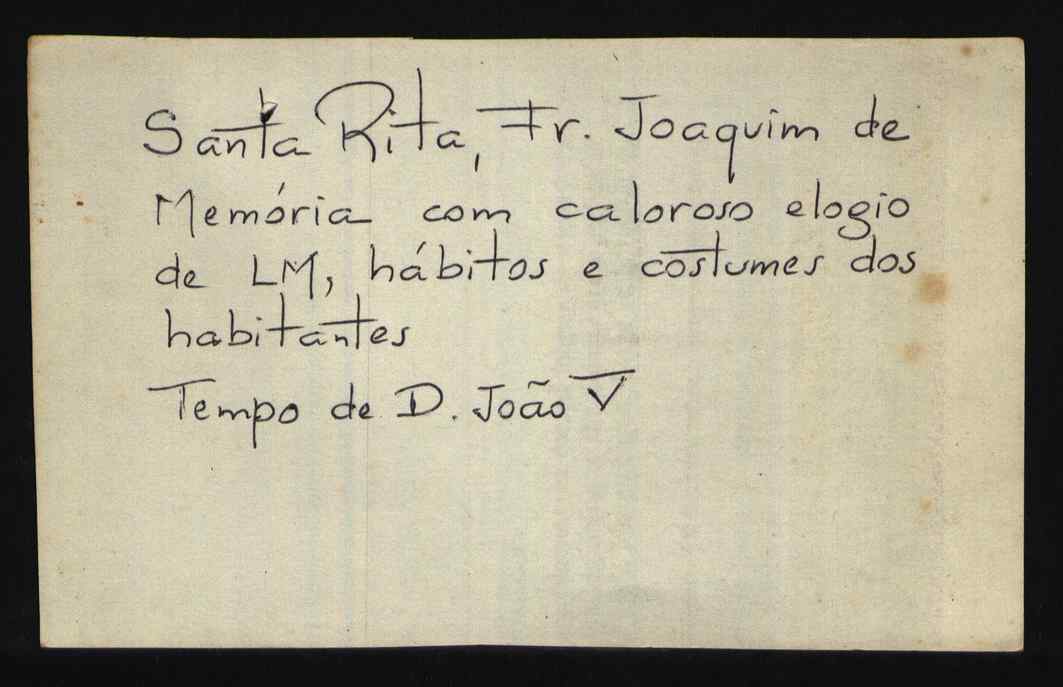 Santa Rita, Fr. Joaquim de
Memória com caloroso elogio
de LM, hábitos e costumes dos
habitantes
Tempo de D. João V